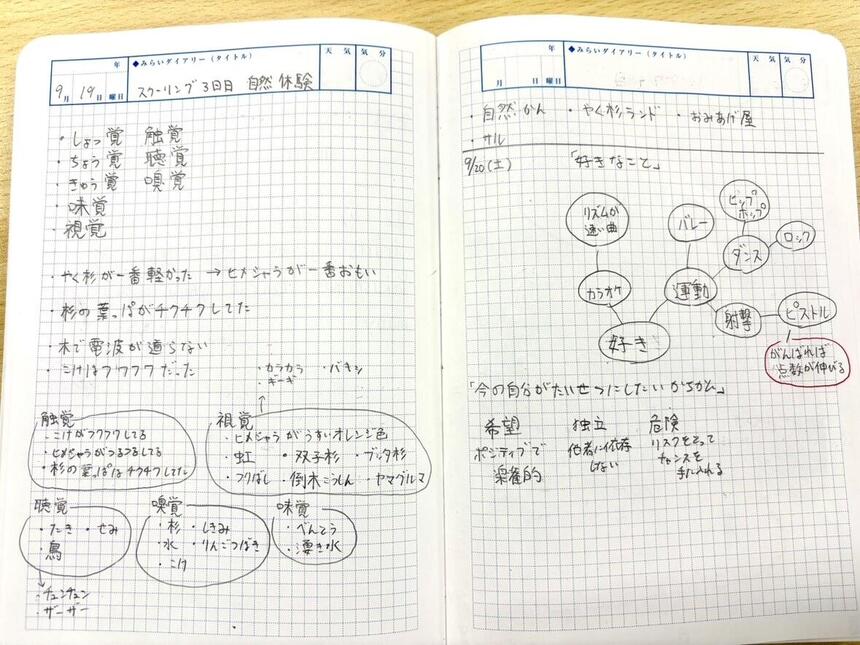 年
◆みらいダイアリー（タイトル）
天気
気分
9月19日 曜日
スクーリング3日目 自然体験
・しょっ覚 触覚
・ちょう覚 聴覚
・きゅう覚 嗅覚
・味覚
・視覚
・やく杉が一番軽かった →ヒメシャラが一番おもい
・杉の葉っぱがチクチクしてた
・木で電波が通らない
・こけはフワフワだった
・カラカラ ・バキン
・ギーギ
触覚
・こけがフワフワしてる
・ヒメシャラがつるつるしてる
・杉の葉っぱはチクチクしてた
視覚
・ヒメシャラがうすいオレンジ色
・虹 ・双子杉 ・ブッタ杉
・つりばし ・倒木こうしん ・ヤマグルマ
聴覚
・たき ・せみ
・鳥
・チュンチュン
・ザーザー
嗅覚
・杉 ・しきみ
・水 ・りんごつばき
・こけ
味覚
・べんとう
・湧き水
年
◆みらいダイアリー（タイトル）
天気
気分
月 日 曜日
・自然かん ・やく杉ランド ・おみあげ屋
・サル
9/20(土) 「好きなこと」
リズムが
速い曲
カラオケ
好き
運動
バレー
ダンス
ヒップ
ホップ
ロック
射撃
ピストル
がんばれば
点数が伸びる
「今の自分がたいせつにしたいかちかん」
希望 独立 危険
ポジティブで
楽観的
他者に依存
しない
リスクをとって
チャンスを
手に入れる